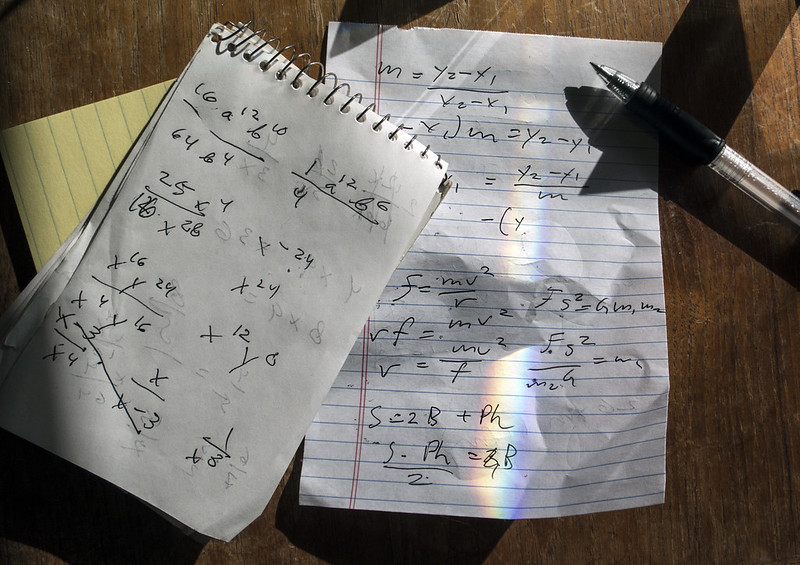 16 a^12 b^10
64 b^4
1 a^12 b^6
4
25 x^4
x^28
x^-24
x^16
x^24
x^24
x^4
x^16
x^12
y^8
x^4
x
x^13
1
x^8
m = y2-y1
x2-x1
- x1) m = y2-y1
y1 = y2-y1
m
-(y
f = mv^2
r
Fs^2 = G m1 m2
rf = mv^2
r = mv^2
f
F.s^2 = m1
m2 G
S = 2B + Ph
S - Ph = B
2